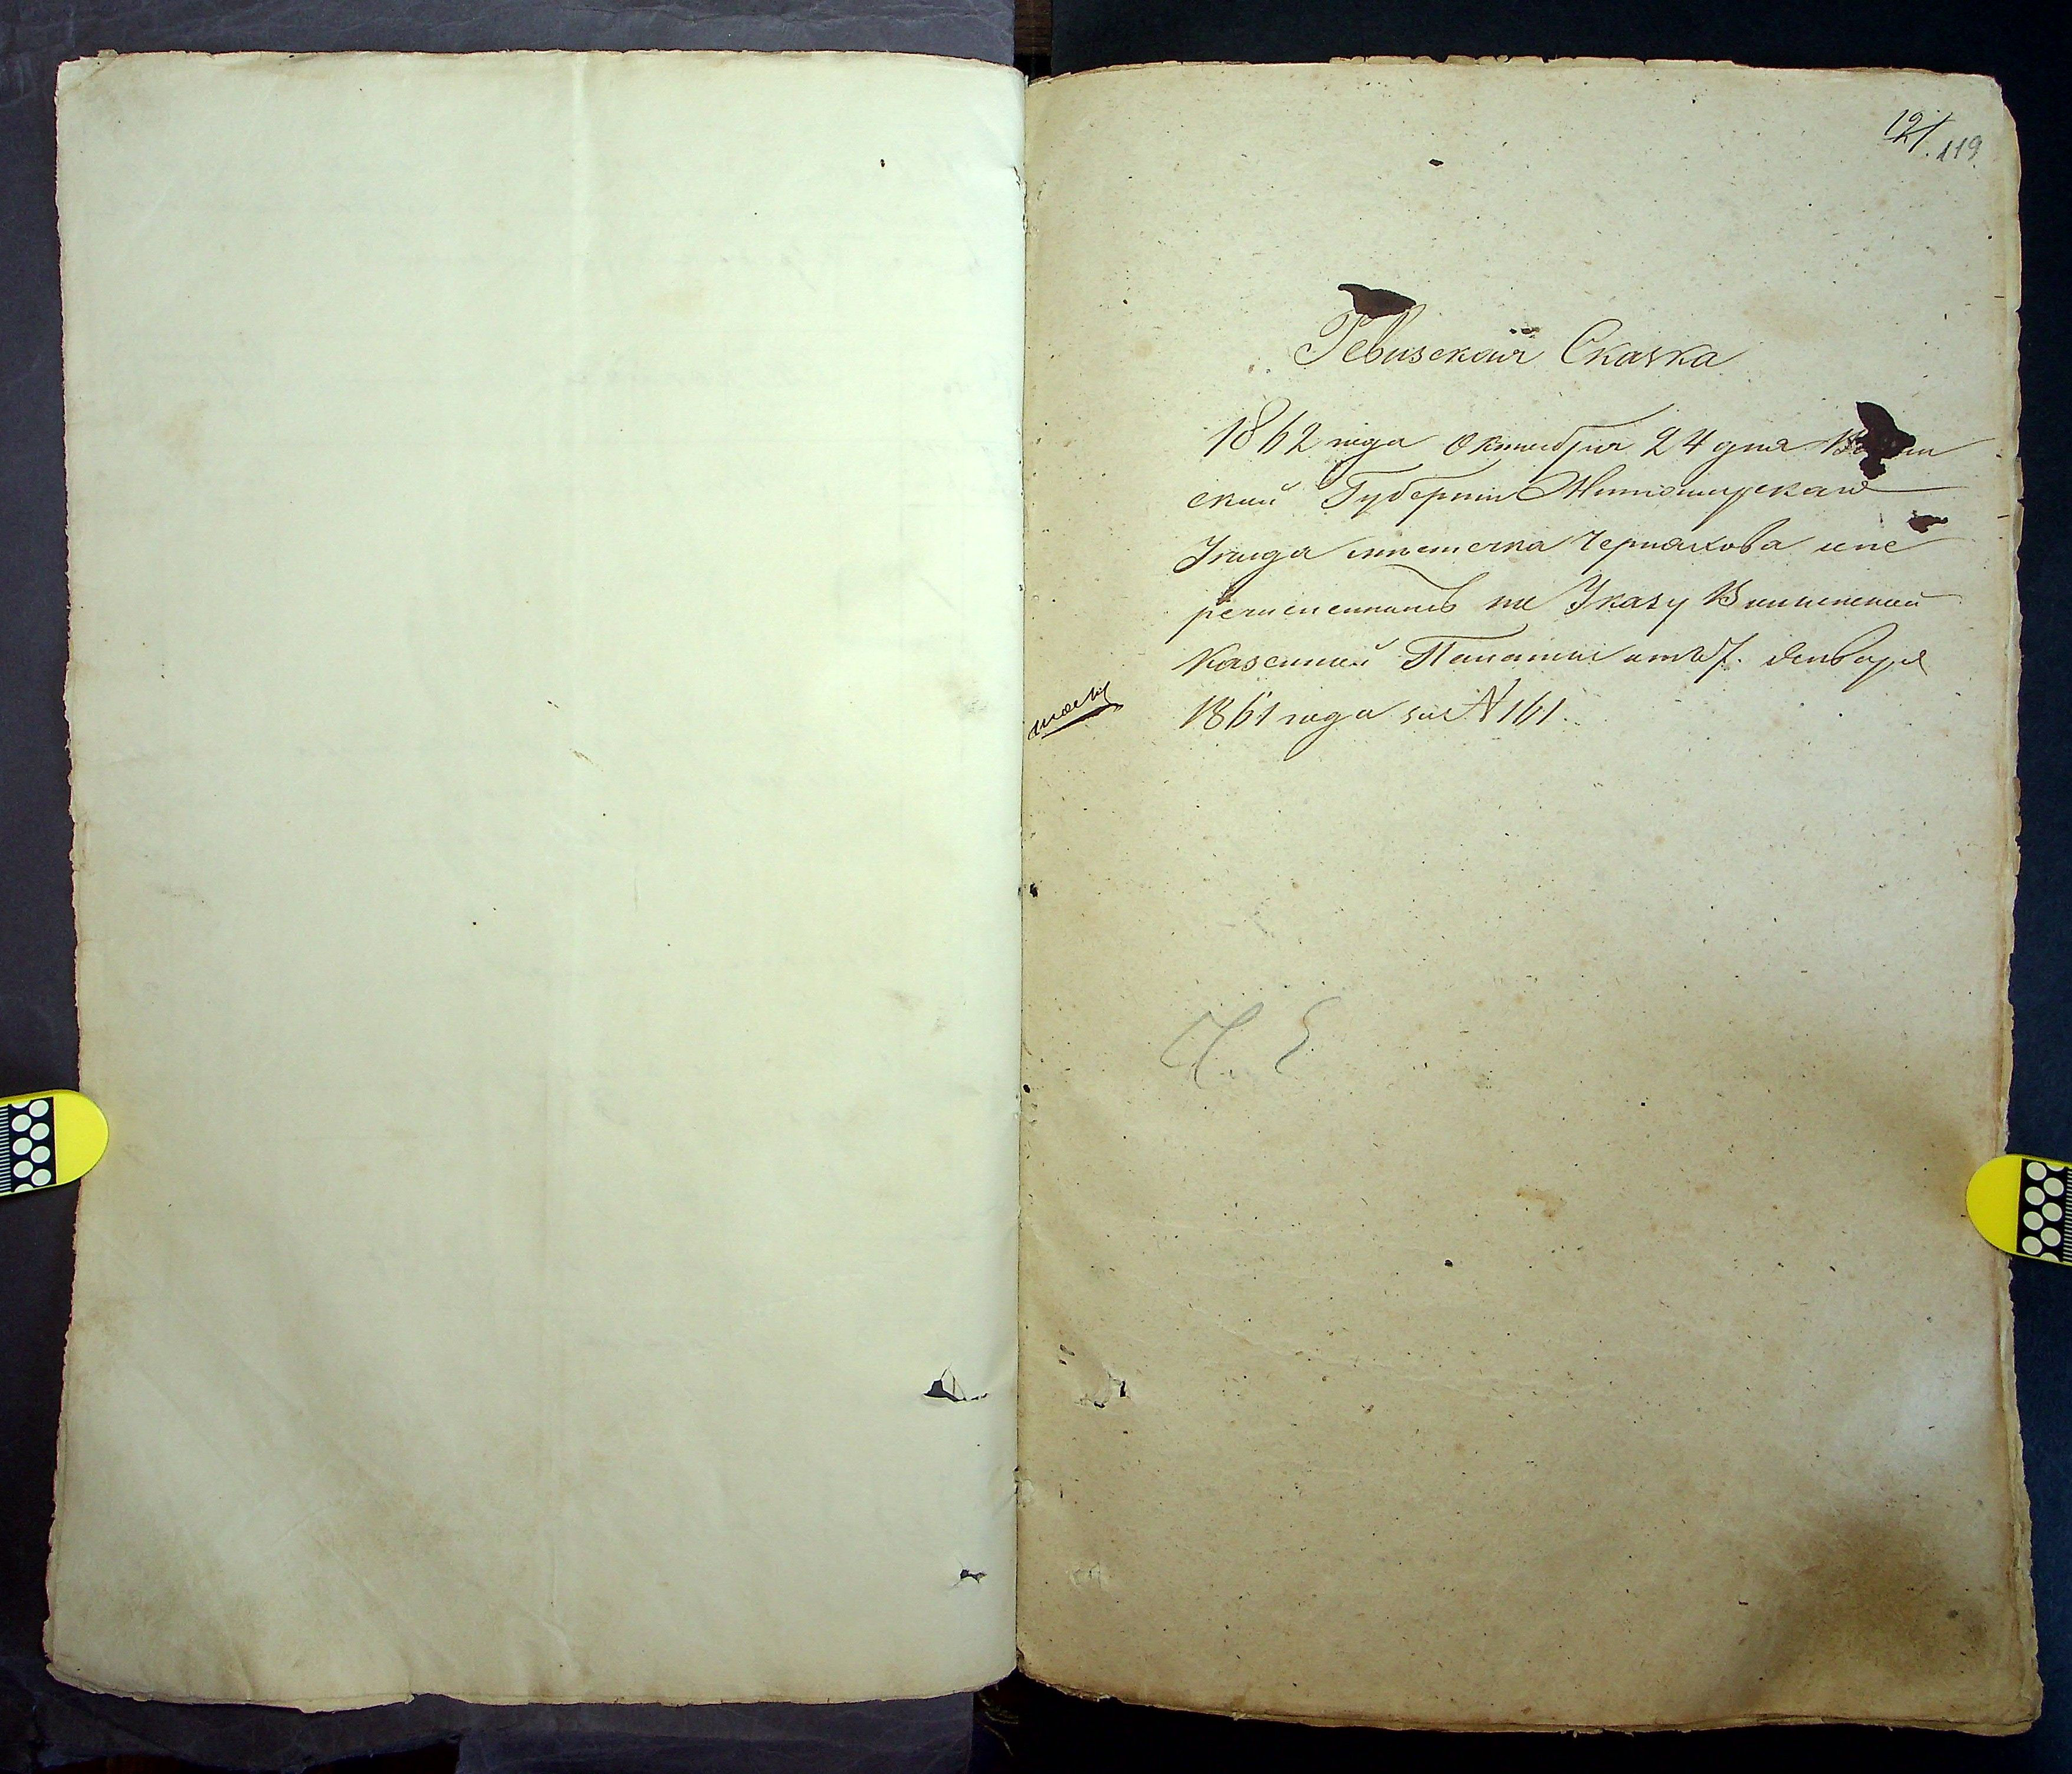 121. 119.
Ревизская Сказка
1862 года Октября 24 дня
ской Губернии Житомирскаго
Уезда местечка Черняхова опе
речисленныхъ по Указу Волынской
Казенной Палаты отъ 7. Января
1861 года за N 161.